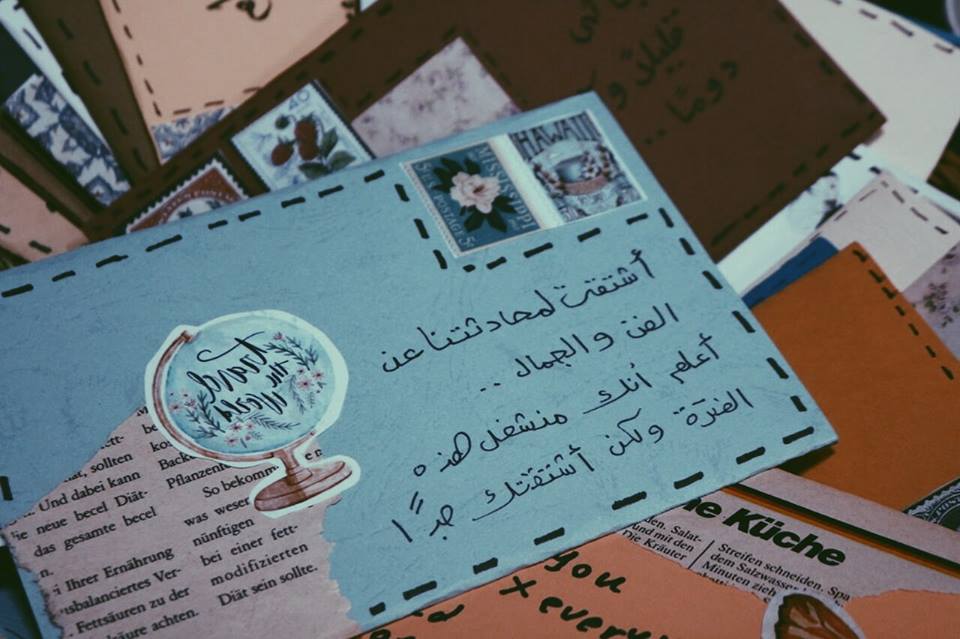 قليلاً و
دومًا ..
40
MISSISSIPPI
U.S. POSTAGE 5¢
HAWAII
أشتقت لمحادثتنا عن
الفن و الجمال ..
أعلم أنك منشغل هذه
الفترة ولكن أشتقتك جدًا
travel
the
World
sollten
Und dabei kann
neue becel Diät-
das gesamte becel
Ihrer Ernährung
usbalanciertes Ver-
Fettsäuren zu der
achten.
Back
Pflanzen
So bekomm
was weser
nünftigen
bei einer fett-
modifizierten
Diät sein sollte.
Küche
den. Salat-
und mit den
Die Kräuter
Streifen schneiden. Spa
dem Salzwasser
Minuten zieh
you
x every